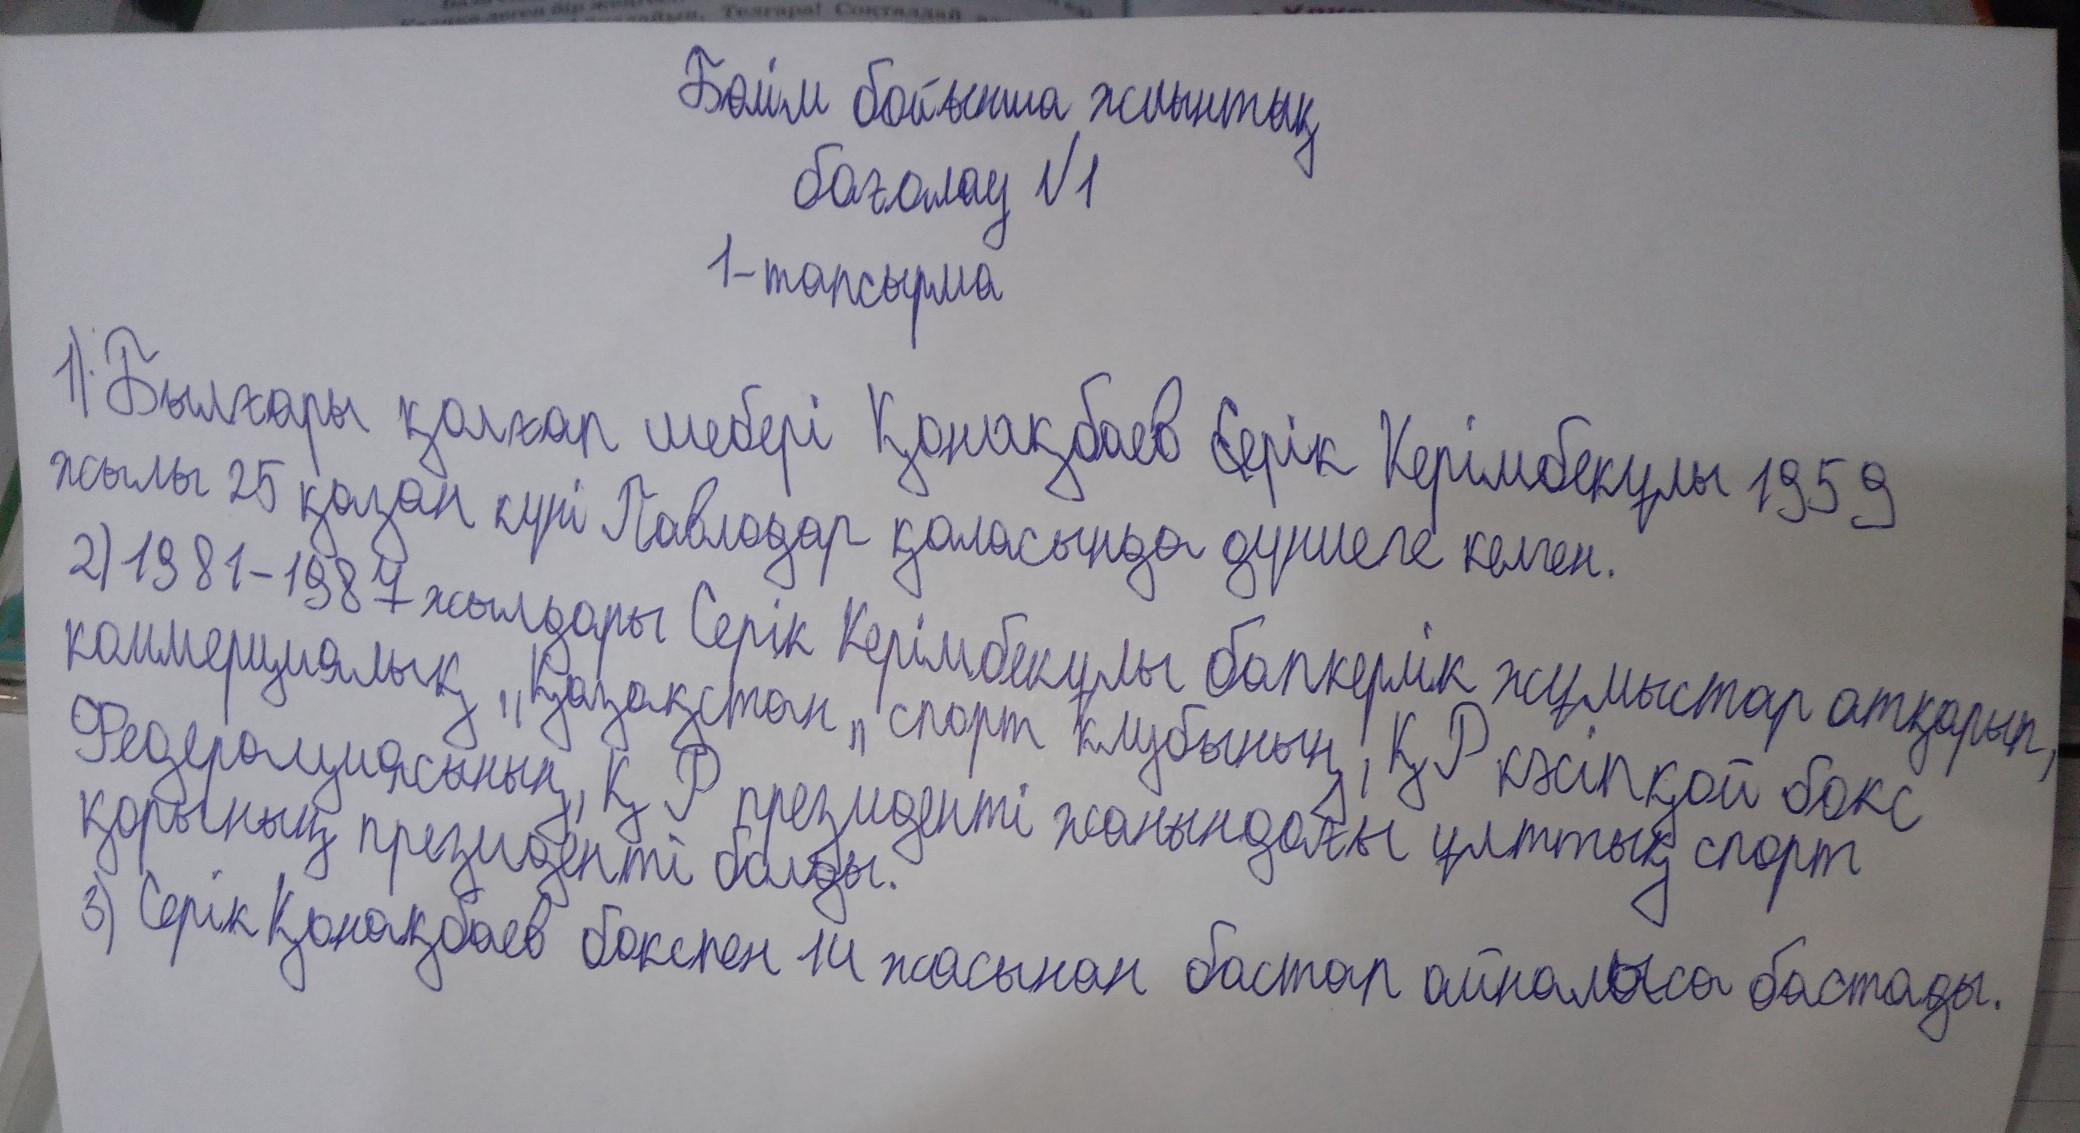 Бөлім бойынша жиынтық
бағалау №1
1-тапсырма
1) Былғары қолғап шебері Қонақбаев Серік Керімбекұлы 1959
жылы 25 қазан күні Павлодар қаласында дүниеге келген.
2) 1981-1987 жылдары Серік Керімбекұлы бапкерлік жұмыстар атқарып,
коммерциялық „Қазақстан„ спорт клубының, ҚР кәсіпқой бокс
Федерациясының, ҚР президенті жанындағы ұлттық спорт
қорының президенті болды.
3) Серік Қонақбаев бокспен 14 жасынан бастап айналыса бастады.